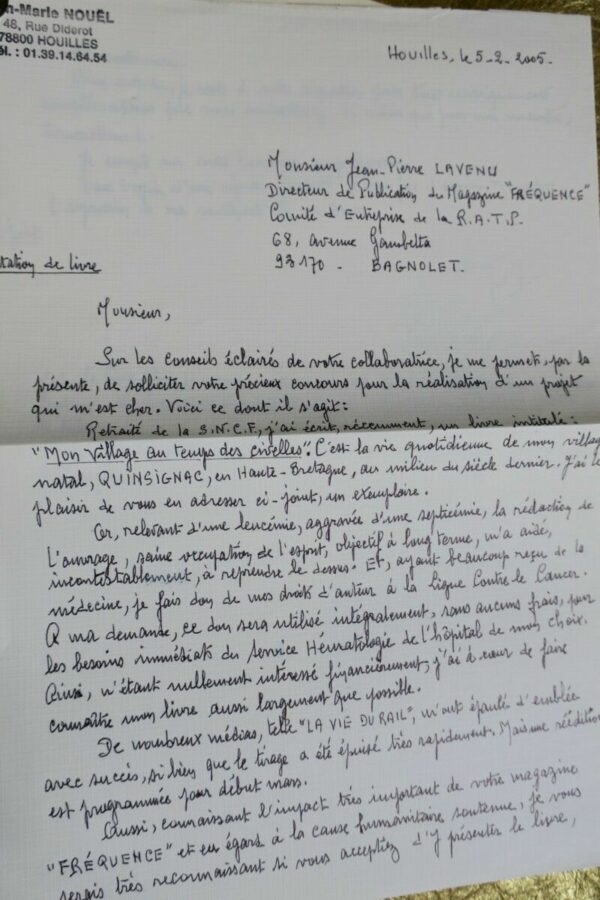 n-Marie NOUËL
48, Rue Diderot
78800 HOUILLES
él. : 01.39.14.64.54
Houilles, le 5-2-2005-
Monsieur Jean-Pierre LAVENU
Directeur de Publication du Magazine "FRÉQUENCE"
Comité d'Entreprise de la R.A.T.P.
68, avenue Gambetta
93170 - BAGNOLET.
tation de livre
Monsieur,
Sur les conseils éclairés de votre collaboratrice, je me permets, par la
présente, de solliciter votre précieux concours pour la réalisation d'un projet
qui m'est cher. Voici ce dont il s'agit:
Retraité de la S.N.C.F., j'ai écrit, récemment, un livre intitulé:
"Mon Village au temps des civelles". C'est la vie quotidienne de mon villag
natal, QUINSIGNAC, en Haute-Bretagne, au milieu du siècle dernier. J'ai le
plaisir de vous en adresser ci-joint, un exemplaire.
Or, relevant d'une leucémie, aggravée d'une septicémie, la rédaction de
l'ouvrage, saine occupation de l'esprit, objectif à long terme, m'a aidé,
incontestablement, à reprendre le dessus. Et, ayant beaucoup reçu de la
médecine, je fais don de mes droits d'auteur à la Ligue Contre le Cancer.
A ma demande, ce don sera utilisé intégralement, sans aucuns frais, pour
les besoins immédiats du Service Hématologie de l'hôpital de mon choix.
Ainsi, n'étant nullement intéressé financièrement, j'ai à cœur de faire
connaître mon livre aussi largement que possible.
De nombreux médias, telle "LA VIE DU RAIL", m'ont épaulé d'emblée
avec succès, si bien que le tirage a été épuisé très rapidement. Mais une réédition
est programmée pour début mars.
Aussi, connaissant l'impact très important de votre magazine
"FRÉQUENCE" et eu égard à la cause humanitaire soutenue, je vous
serais très reconnaissant si vous acceptiez d'y présenter le livre,